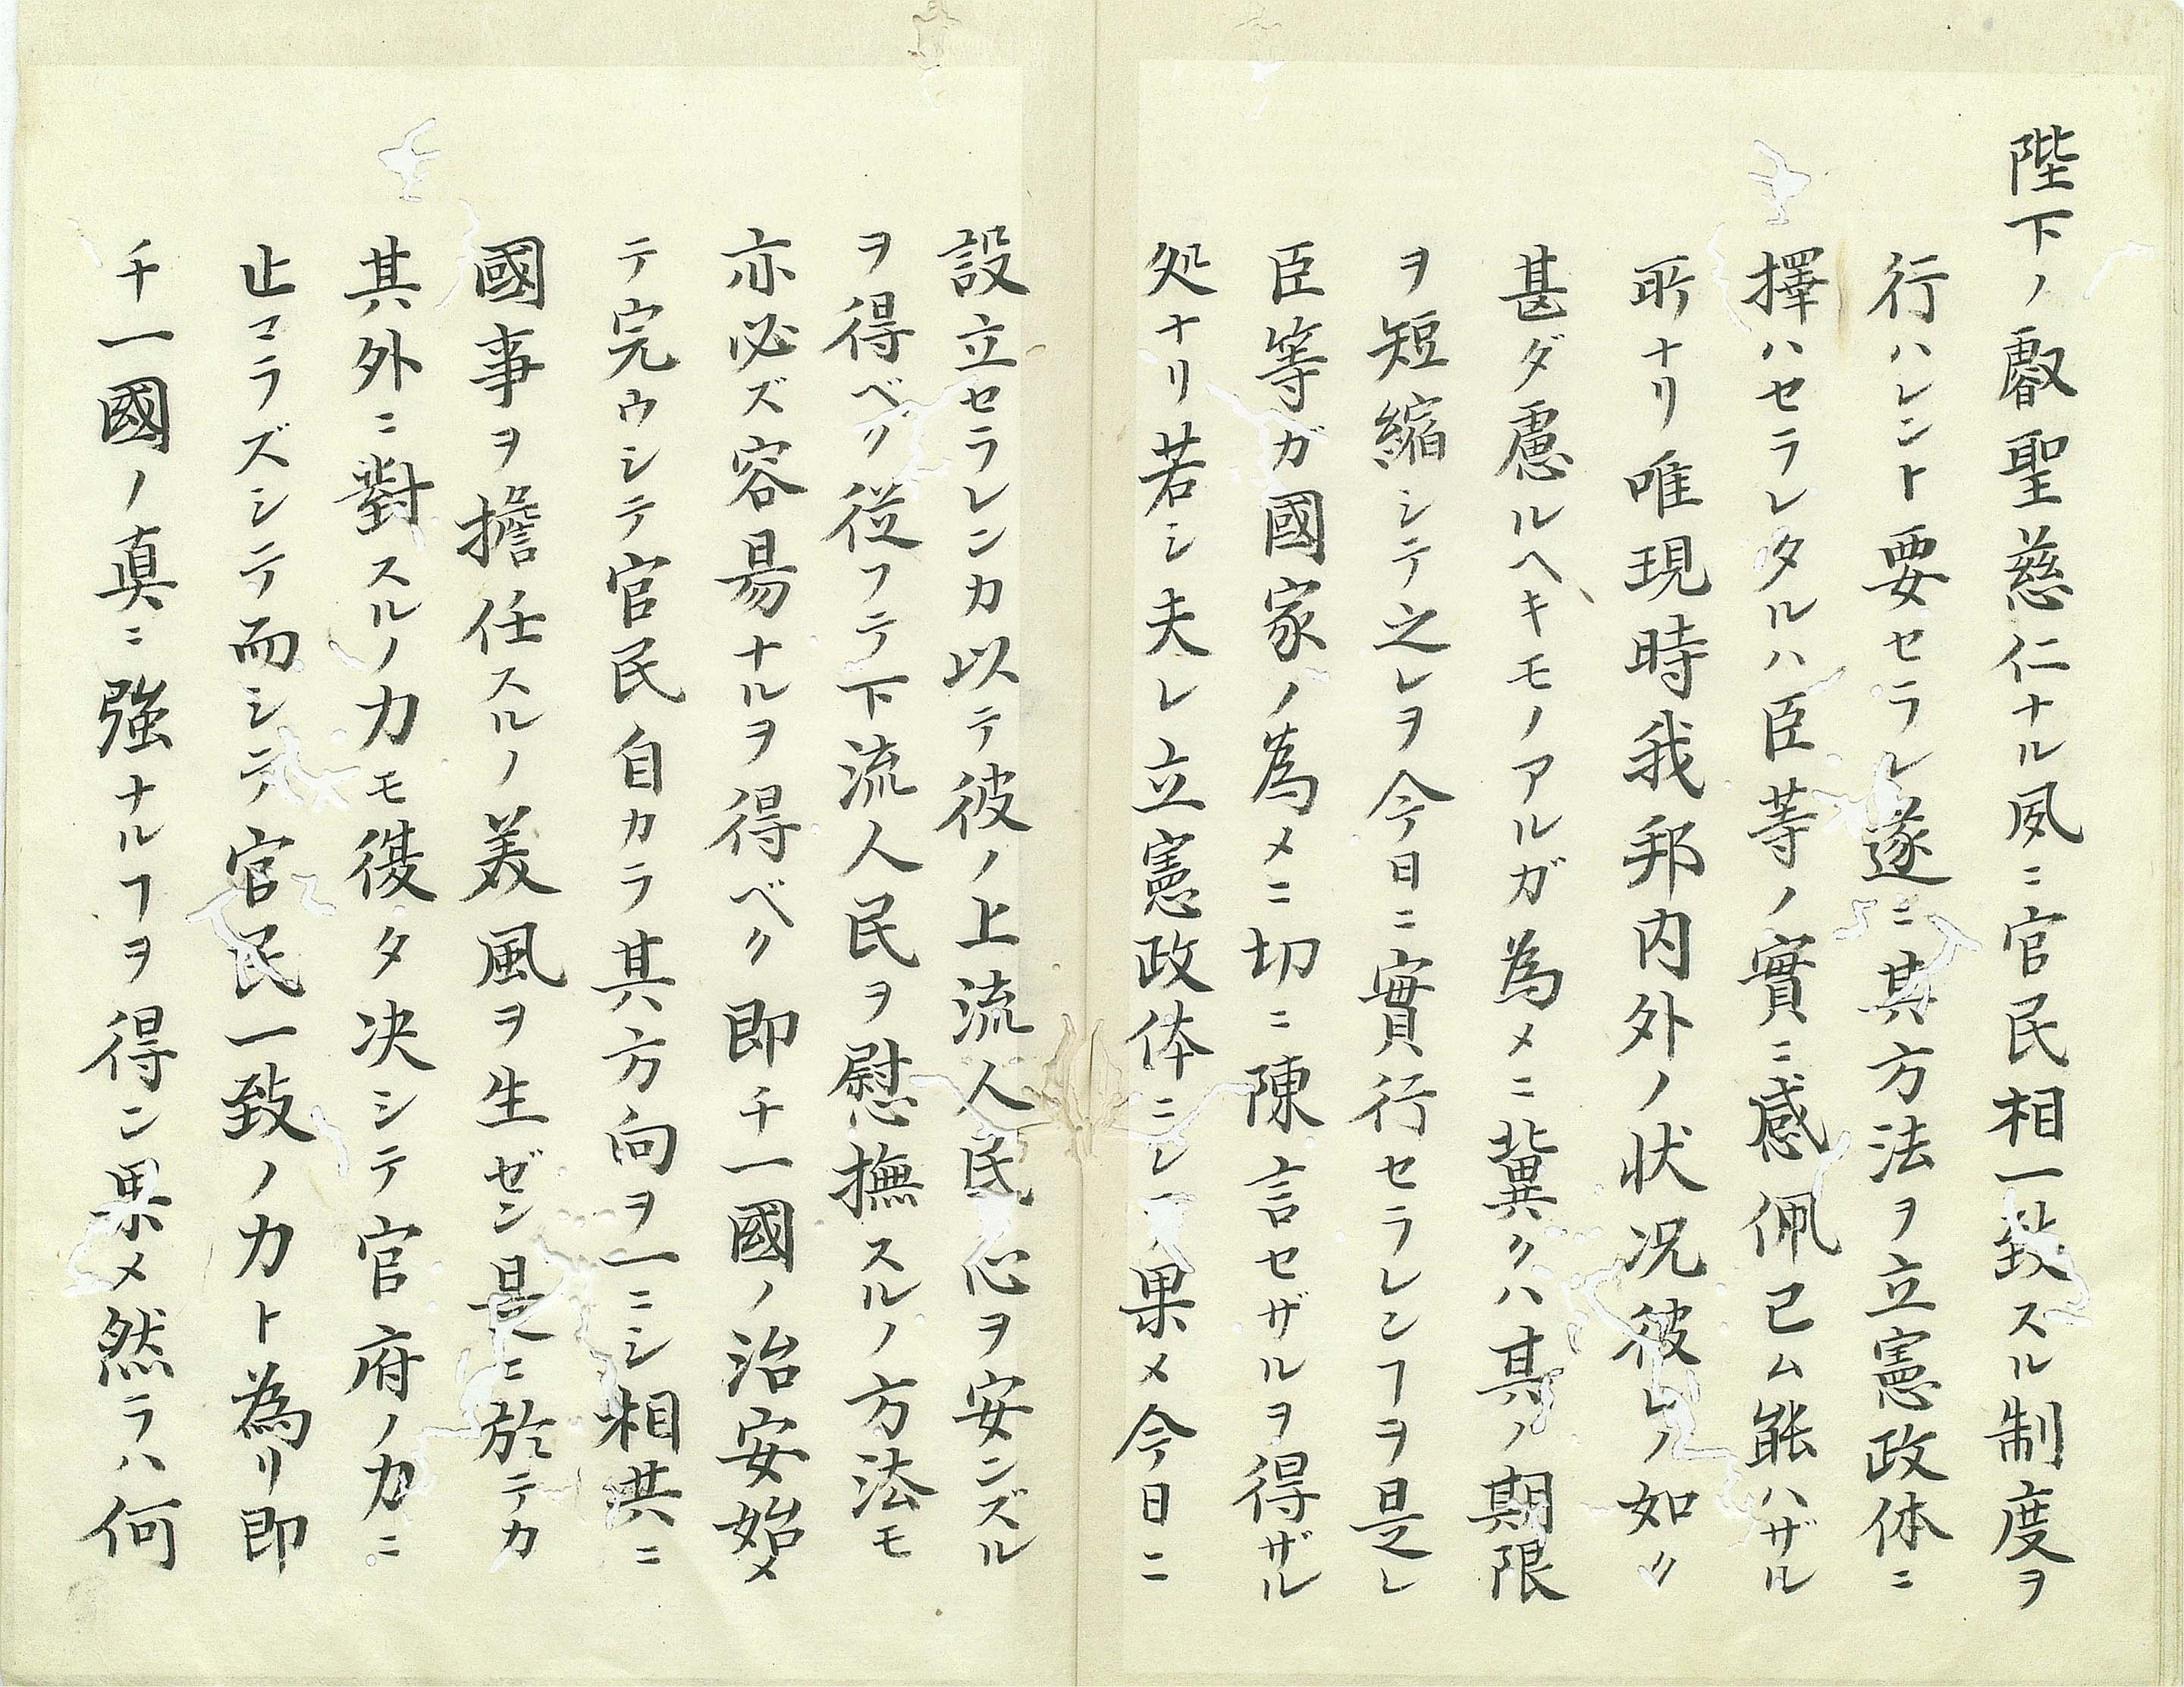 陛下ノ叡聖慈仁ナル夙ニ官民相一致スル制度ヲ
行ハレント要セラレ遂ニ其方法ヲ立憲政体ニ
擇ハセラレタルハ臣等ノ實ニ感佩已ム能ハザル
所ナリ唯現時我邦内外ノ状况彼レノ如〃
甚ダ慮ルヘキモノアルガ為メニ冀クハ其ノ期限
ヲ短縮シテ之レヲ今日ニ實行セラレンヿヲ是レ
臣等ガ國家ノ為メニ切ニ陳言セザルヲ得ザル
処ナリ若シ夫レ立憲政体ニシ果メ今日ニ
設立セラレンカ以テ彼ノ上流人民心ヲ安ンズル
ヲ得ベク従フテ下流人民ヲ慰撫スルノ方法モ
亦必ズ容昜ナルヲ得ベク即チ一國ノ治安始メ
テ完ウシテ官民自カラ其方向ヲ一ニシ相共ニ
國事ヲ擔任スルノ美風ヲ生ゼン是ニ於テカ
其外ニ對スルノ力モ復タ决シテ官府ノ力ニ
止マラズシテ而シテ官民一致ノ力ト為リ即
チ一國ノ真ニ強ナルヿヲ得ン果メ然ラハ何